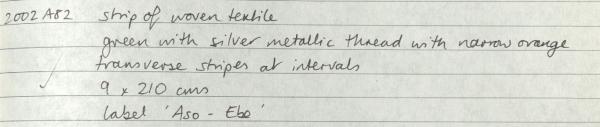 2002 A82 strip of woven textile
green with silver metallic thread with narrow orange
transverse stripes at intervals
9 x 210 cms
Label 'Aso - Ebe'